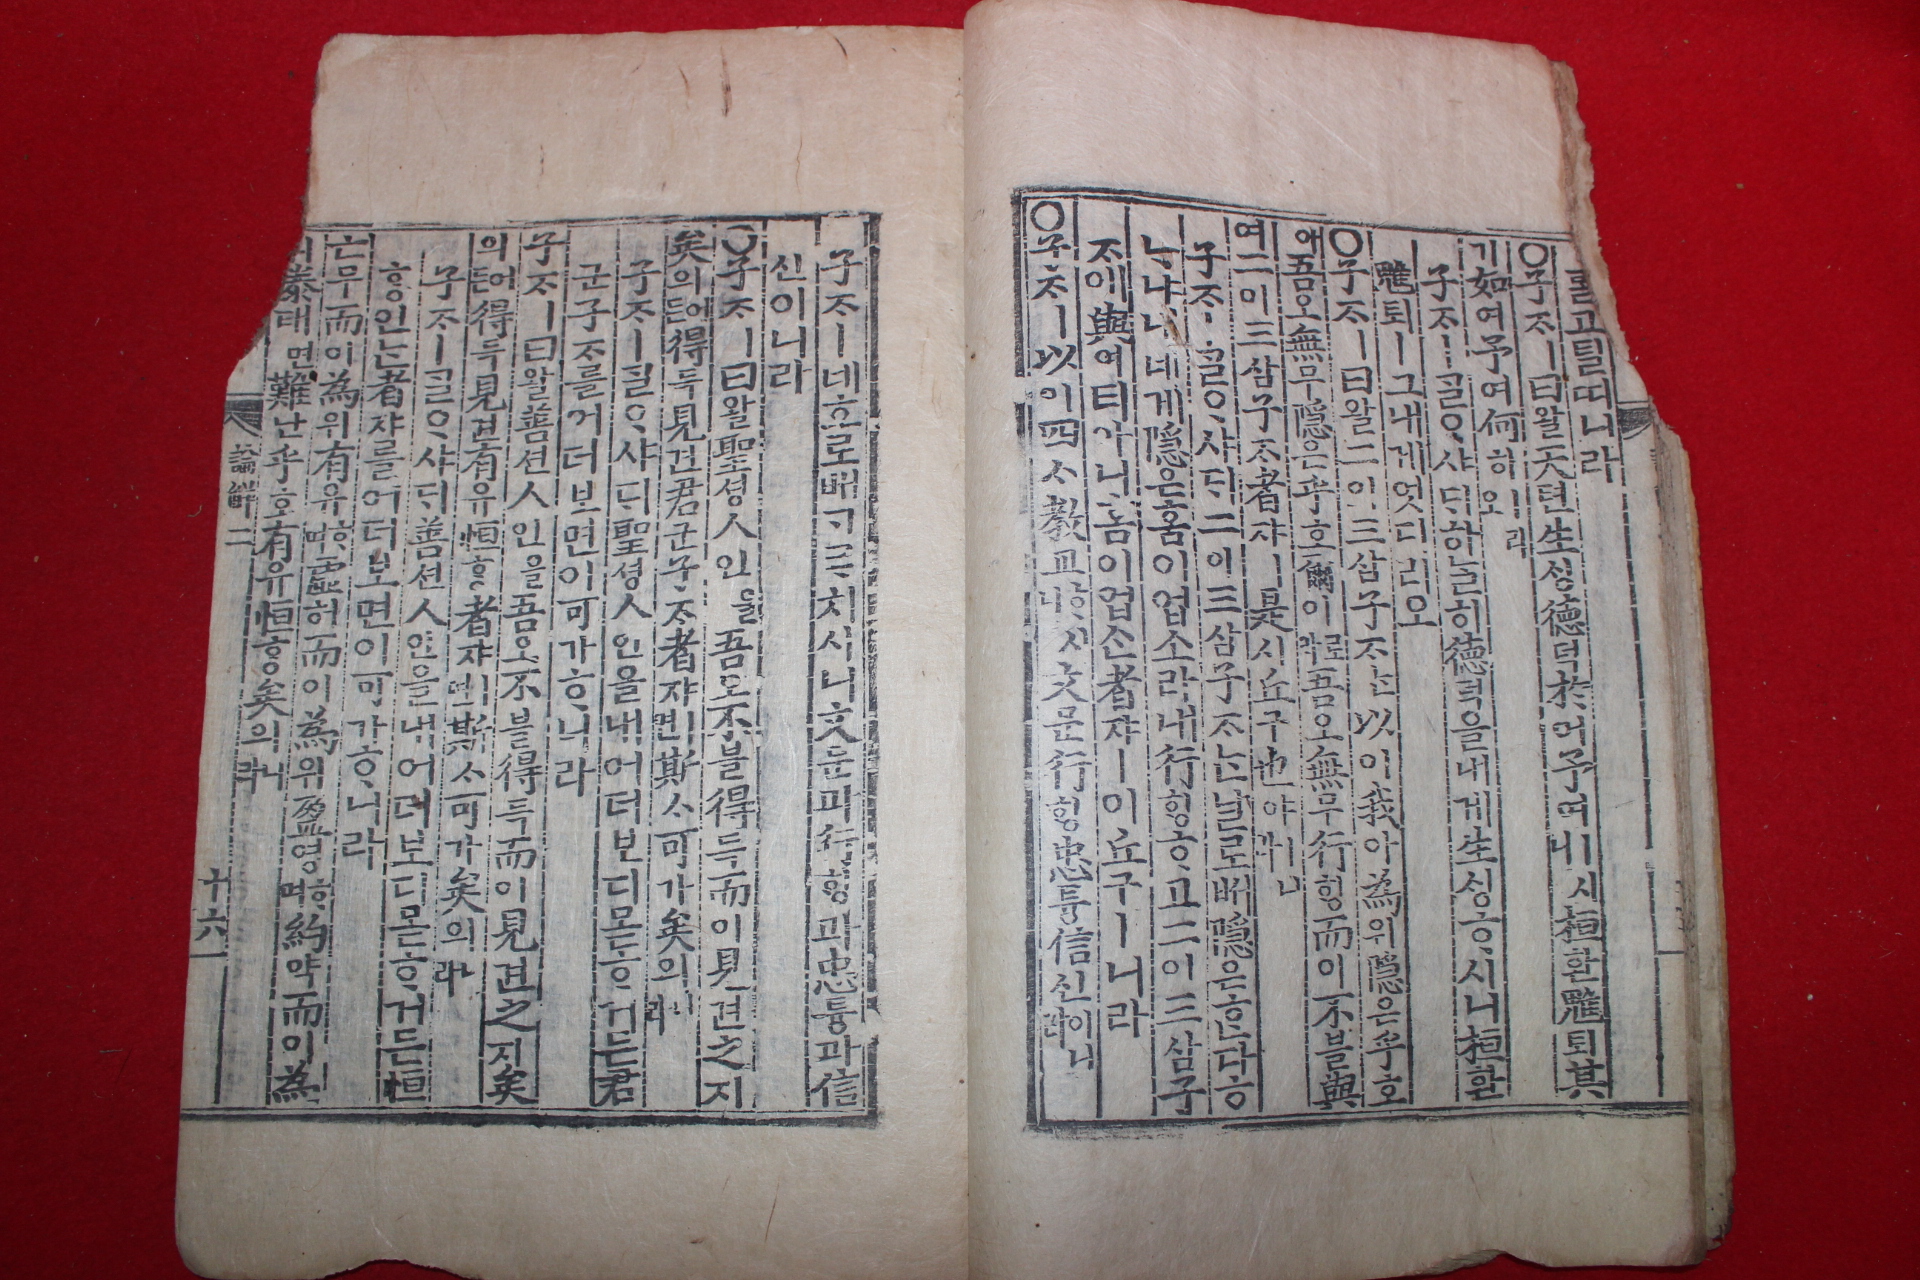 고틸띠니라
○子ᄌᆞㅣ曰왈天텬生ᄉᆡᆼ德덕於어予여ㅣ시니桓환魋퇴其
기如여予여何하ㅣ리오
子ᄌᆞㅣᄀᆞᆯᄋᆞ샤ᄃᆡ하ᄂᆞᆯ히德덕을내게生ᄉᆡᆼᄒᆞ시니桓환
魋퇴ㅣ그내게엇디리오
○子ᄌᆞㅣ曰왈二이三삼子ᄌᆞᄂᆞᆫ以이我아爲위隱은乎호
아吾오無무隱은乎호爾이로라吾오無무行ᄒᆡᆼ而이不블與
여二이三삼子ᄌᆞ者쟈ㅣ是시丘구也야ㅣ니라
子ᄌᆞㅣᄀᆞᆯᄋᆞ샤ᄃᆡ二이三삼子ᄌᆞᄂᆞᆫ날로ᄡᅥ隱은ᄒᆞᆫ다ᄒᆞ
ᄂᆞ냐내네게隱은홈이업소라내行ᄒᆡᆼᄒᆞ고二이三삼子
ᄌᆞ애與여티아니홈이업슨者쟈ㅣ이丘구ㅣ니라
○子ᄌᆞㅣ以이四ᄉᆞ敎교ᄒᆞ시니文문行ᄒᆡᆼ忠튱信신이니라
子ᄌᆞㅣ네흐로ᄡᅥᄀᆞᄅᆞ치시니文문과行ᄒᆡᆼ과忠튱과信
신이니라
○子ᄌᆞㅣ曰왈聖셩人인을吾오不블得득而이見견之지
矣의어든得득見견君군子ᄌᆞ者쟈ㅣ면斯ᄉᆞ可가矣의니라
子ᄌᆞㅣᄀᆞᆯᄋᆞ샤ᄃᆡ聖셩人인을내어더보디몯ᄒᆞ거든君
군子ᄌᆞ를어더보면이可가ᄒᆞ니라
子ᄌᆞㅣ曰왈善션人인을吾오不블得득而이見견之지矣
의어든得득見견有유恒ᄒᆞᆼ者쟈ㅣ면斯ᄉᆞ可가矣의니라
子ᄌᆞㅣᄀᆞᆯᄋᆞ샤ᄃᆡ善션人인을내어더보디몯ᄒᆞ거든恒
ᄒᆞᆼ인ᄂᆞᆫ者쟈를어더보면이可가ᄒᆞ니라
亡무而이爲위有유ᄒᆞ며虛허而이爲위盈영ᄒᆞ며約약而이爲
위泰태면難난乎호有유恒ᄒᆞᆼ矣의니라
論解二
十六